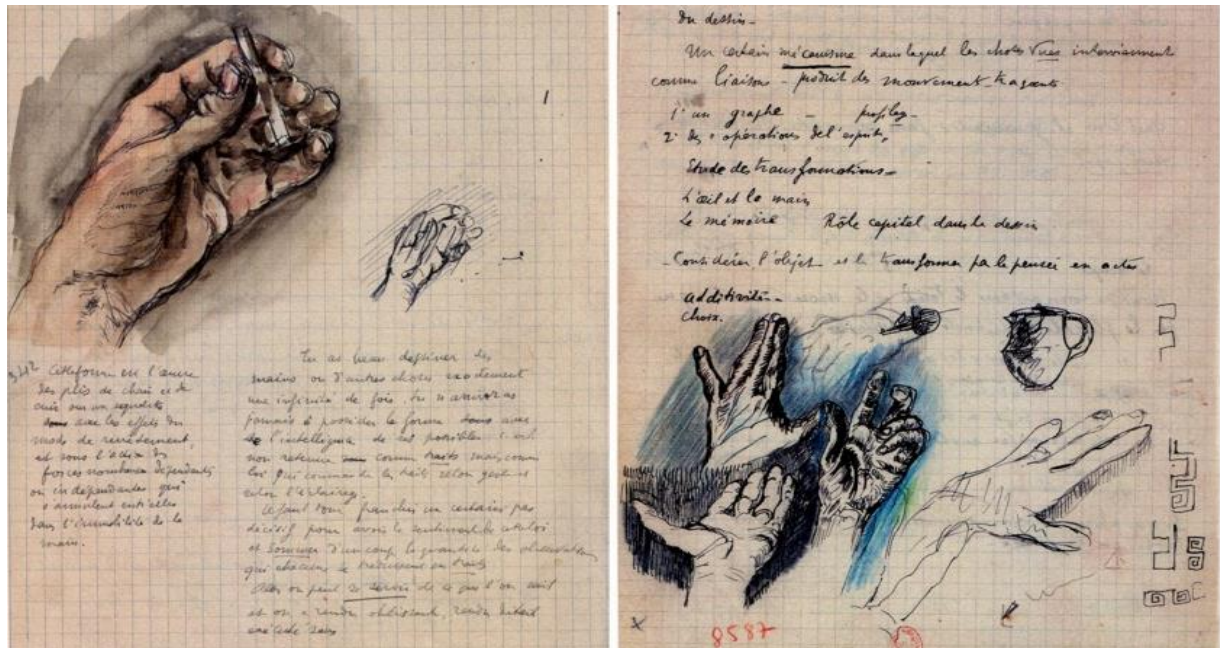 1
342
Cette forme en l'œuvre
des plis de chair et de
cuir ou un
avec les effets du
mode de revêtement,
et sous l'action des
forces nombreuses dépendantes
ou indépendantes qui
s'annulent entr'elles
dans l'immobilité de la
main.
Tu as beau dessiner des
mains ou d'autres choses exactement
une infinité de fois, tu n'auras
jamais à posséder la forme avec
l'intelligence de ses possibles. C'est
non retenue comme traits mais comme
loi qui commande le trait selon gestes et
selon l'éclairage.
Il faut donc franchir un certain pas
décisif pour avoir le sentiment de cette loi
et sommer d'un coup la quantité des observations
qui chacune se traduisent en traits
Alors on peut se servir de ce que l'on sait
et on a rendu obéissant, rendu
Du dessin -
Un certain mécanisme dans lequel les choses vues interviennent
comme liaison - produit des mouvements traçants
1° un graphe - profilage
2° des "opérations de l'esprit"
Etude des transformations -
L'œil et la main
La mémoire Rôle capital dans le dessin
- Considérer l'objet et le transformer par la pensée en actes
additivités -
choix.
8587